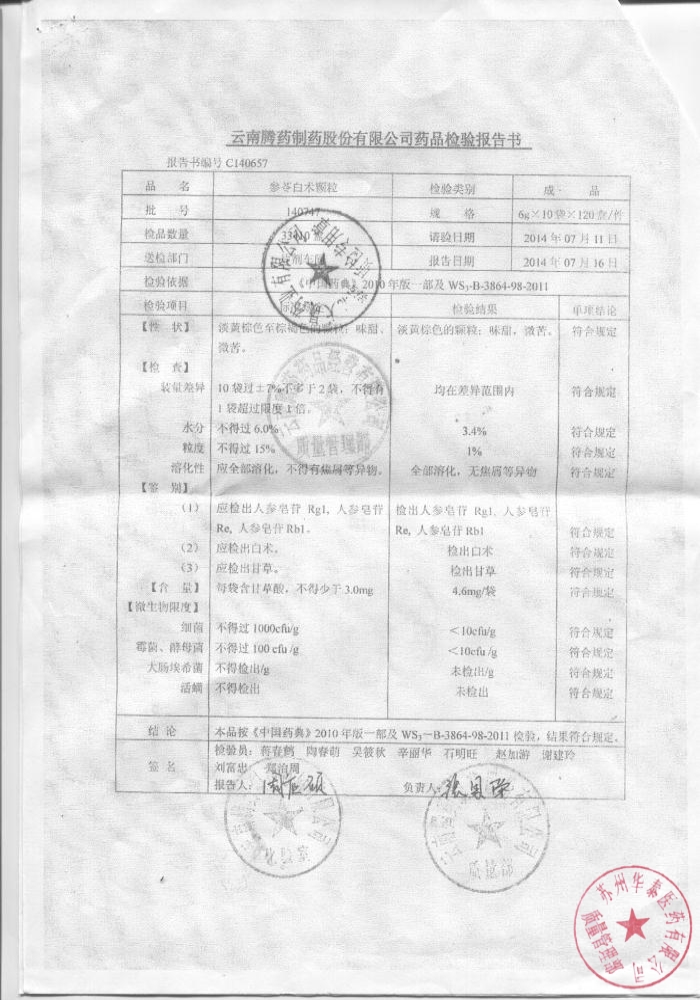 云南腾药制药股份有限公司药品检验报告书
报告书编号 C140657
品 名 参苓白术颗粒 检验类别 成 品
批 号 140747 规 格 6g×10袋×120盒/件
检品数量 请验日期 2014年07月11日
送检部门 报告日期 2014年07月16日
检验依据 《中国药典》2010年版一部及 WS3-B-3864-98-2011
检验项目 检验结果 单项结论
【性 状】 淡黄棕色至棕褐色的颗粒；味甜、 淡黄棕色的颗粒；味甜，微苦。 符合规定
微苦。
【检 查】
装量差异 10袋过±7%不多于2袋，不得有 均在差异范围内 符合规定
1袋超过限度1倍。
水分 不得过6.0% 3.4% 符合规定
粒度 不得过15% 1% 符合规定
溶化性 应全部溶化，不得有焦屑等异物。 全部溶化，无焦屑等异物 符合规定
【鉴 别】
（1） 应检出人参皂苷 Rg1, 人参皂苷 检出人参皂苷 Rg1、人参皂苷
Re, 人参皂苷 Rb1。 Re, 人参皂苷 Rb1 符合规定
（2） 应检出白术。 检出白术 符合规定
（3） 应检出甘草。 检出甘草 符合规定
【含 量】 每袋含甘草酸，不得少于3.0mg 4.6mg/袋 符合规定
【微生物限度】
细菌 不得过1000cfu/g ＜10cfu/g 符合规定
霉菌、酵母菌 不得过100 cfu /g ＜10cfu /g 符合规定
大肠埃希菌 不得检出/g 未检出/g 符合规定
活螨 不得检出 未检出 符合规定
结 论 本品按《中国药典》2010年版一部及 WS3－B-3864-98-2011 检验，结果符合规定。
检验员：蒋春鹤 陶春萌 吴筱秋 辛丽华 石明旺 赵加游 谢建玲
签 名 刘富忠 郑治周
报告人： 负责人：
云南药品经营有限公司
质量管理部
质量部
苏州华泰医药有限公司
质量管理部